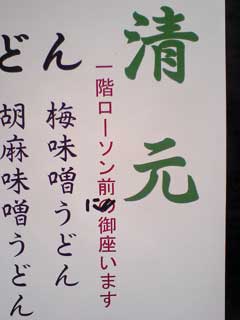 清元
一階ローソン前に御座います
どん
梅味噌うどん
胡麻味噌うどん